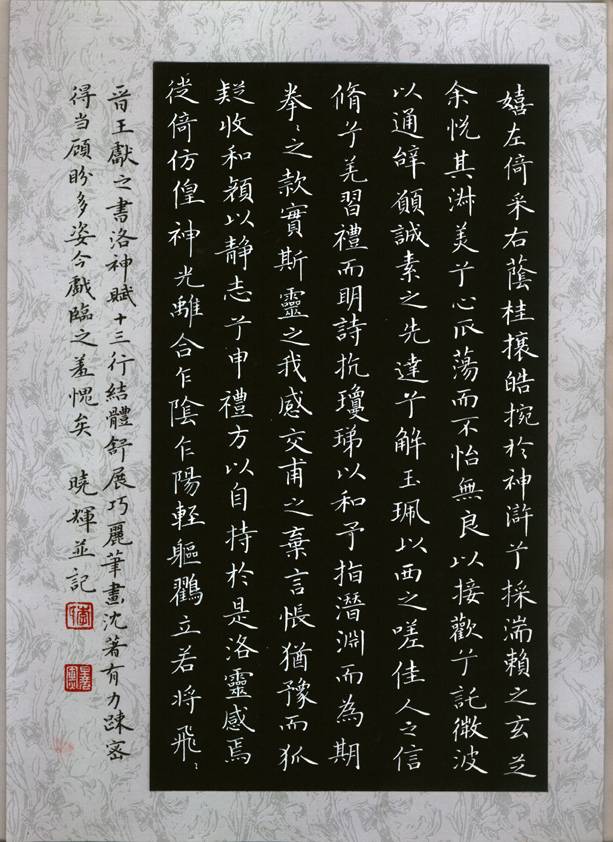 嬉左倚采右蔭桂攘皓捥於神滸兮採湍賴之玄芝
余悅其淋美兮心㕚蕩而不怡無良以接歡兮託微波
以通辞願誠素之先達兮解玉珮以西之嗟佳人之信
脩兮羌習禮而明詩抗瓊珶以和予指潛淵而為期
拳〻之款實斯靈之我感交甫之棄言悵猶豫而狐
疑收和顏以静志兮申禮方以自持於是洛靈感焉
徙倚仿偟神光離合乍陰乍陽輕軀鸖立若将飛〻
晉王獻之書洛神賦十三行結體舒展巧麗筆畫沈著有力踈宻
得当顧盼多姿今戲臨之羞愧矣 曉輝並記